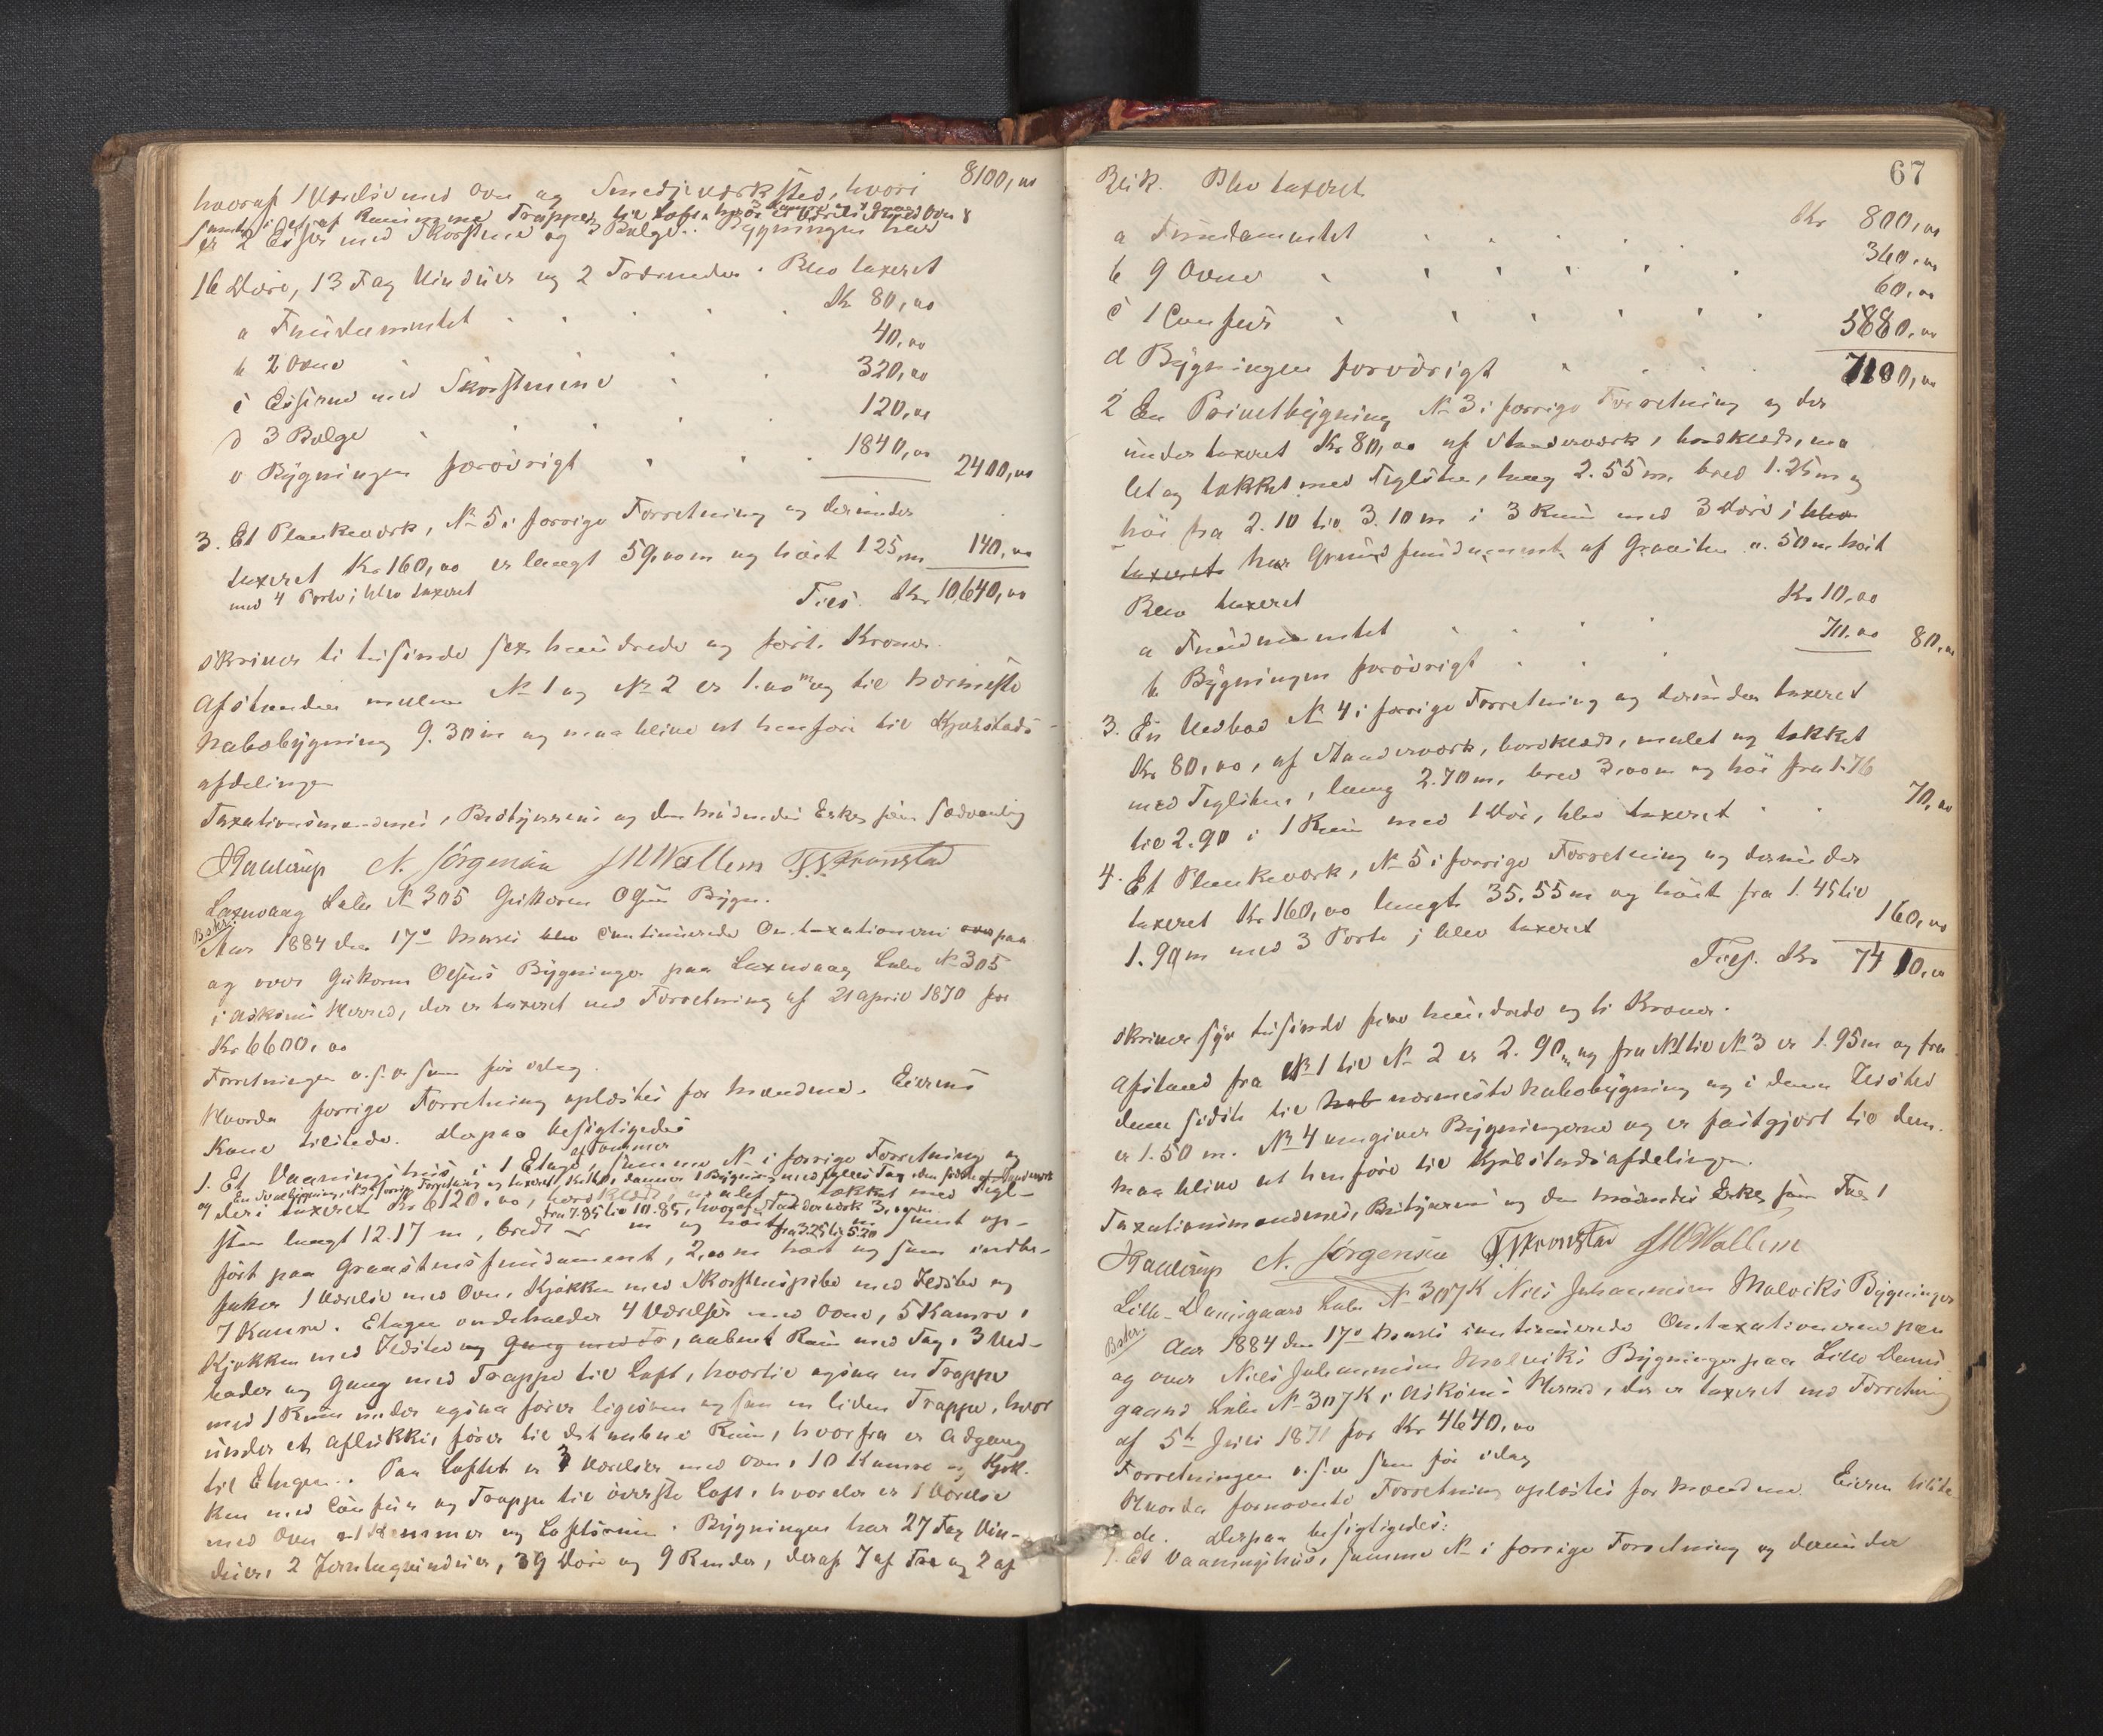 8100,00
hvoraf 1 Værelse med Ovn og Smedjeværksted, hvori
samt i det af Rummene Trapper til Loft, hvor
er 2 Esser med Skorstene og 3 Bælge. Bygningen har
16 Døre, 13 Fag Vinduer og 2 Tagrender. Blev taxeret
a Fundamentet Kr 80,00
b 2 Ovne 40,00
c Esserne med Skorstene 320,00
d 3 Bælge 120,00
e Bygningen forøvrigt 1840,00 2400,00
3. Et Plankeværk, № 5 i forrige Forretning og derunder
taxeret Kr 160,00 er langt 59,00 m og høit 1 25 m 140,00
med 4 Porte; blev taxeret
Ties. Kr 10,640,00
skriver ti tusinde sex hundrede og førti Kroner.
Afstanden mellem № 1 og № 2 er 1.00 m og til nærmeste
Nabobygning 9.30 m og maa blive at henføre til Kjøbstads-
afdelingen
Taxationsmændenes, Bestyrerens og den mødendes Ersker som sædvanlig
N. Jørgensen J M Wallem Kronstad
Laxevaag Løbe № 305 Guttorm Olsens Bygn.
Beskr.
Aar 1884 den 17de Marts blev continuerede Omtaxationerne over paa
og over Guttorm Olsens Bygninger paa Laxevaag Løbe № 305
i Askøens Herred, der er taxeret ved Forretning af 21 April 1870 for
Kr 6600,00
Forretningen o.s.v. som før idag.
Hvorda forrige Forretning oplæstes for Mændene. Eierens
Kone tilstede. Derpaa besigtigedes
af Tømmer
1. Et Vaaningshus i 1 Etage, samme № i forrige Forretning og
og deri taxeret Kr 6120,00, bordklædt, malet og tækket med Tegl-
fra 7.85 til 10.85, hvoraf Standerværk 3,00 m
sten langt 12.17 m, bredt m og høit fra 3.25 til 5.20 m samt op-
ført paa Graastensfundament, 2,00 m høit og som indbe-
fatter 1 Værelse med Ovn, Kjøkken med Skorstenspibe med Ildsted og
7 Kamre. Etagen indeholder 4 Værelser med Ovne, 5 Kamre,
Kjøkken med Ildsted og Gang med to, aabent Rum med Tag, 3 Ved-
boder og Gang med Trappe til Loft, hvortil ogsaa en Trappe
med 1 Rum under ogsaa fører ligesom og saa en liden Trappe, hvor
under et Aflukke, fører til det aabne Rum, hvorfra er Adgang
til Etagen. Paa Loftet er 3 Værelser med Ovn, 10 Kamre og Kjøk-
ken med Comfur og Trappe til øverste Loft, hvor der er 1 Værelse
med Ovn 1 Kammer og Loftsrum. Bygningen har 27 Fag Vin-
duer, 2 Jerntagvinduer, 39 Døre og 9 Render, deraf 7 af Træ og 2 af
67
Blik. Blev taxeret
a Fundamentet Kr 800,00
b 9 Ovne 360,00
c 1 Comfur 60,00
d Bygningen forøvrigt 5880,00
7100,00
2 En Privetbygning № 3 i forrige Forretning og der
under taxeret Kr 80,00 af Standerværk, bordklædt, ma
let og tækket med Teglsten, lang 2.55 m, bred 1.25 m og
høi fra 2.10 til 3.10 m i 3 Rum med 3 Døre; blev
taxeret har Grundfundament af Graasten 0.50 m høit
Blev taxeret
a Fundamentet Kr 10,00
b Bygningen forøvrigt 70.00 80,00
3. En Vedbod № 4 i forrige Forretning og derunder taxeret
Kr 80,00, af Standerværk, bordklædt, malet og tækket
med Teglsten, lang 2.70 m, bred 3,00 m og høi fra 1.76
til 2.90 i 1 Rum med 1 Dør, blev taxeret 70,00
4. Et Plankeværk, № 5 i forrige Forretning og derunder
taxeret Kr 160,00 langt 35.55 m og høit fra 1.45 til
1.90 m med 3 Porte; blev taxeret 160,00
Ties. Kr 7410,00
skriver syv tusinde fire hundrede og ti Kroner.
Afstand fra № 1 til № 2 er 2.90 m og fra № 1 til № 3 er 1.95 m og fra
denne sidste til Nab nærmeste Nabobygning og i denne Ildsted
er 1.50 m. № 4 omgiver Bygningerne og er fastgjort til dem.
Maa blive at henføre til Kjøbstadsafdelingen.
Taxationsmændenes, Bestyrerens og den mødendes Ersker som Frem
N. Jørgensen Kronstad J M Wallem
Lille-Damsgaard Løbe № 307K Niels Johannesen Malviks Bygninger
Beskr.
Aar 1884 den 17de Marts continuerede Omtaxationerne paa
og over Niels Johannesen Malviks Bygninger paa Lille Dams
gaard Løbe № 307K i Askøens Herred, der er taxeret ved Forretning
af 5te Juli 1871 for Kr 4640,00
Forretningen o.s.v. som før idag
Hvorda fornævnte Forretning oplæstes for Mændene. Eieren tilste
de. Derpaa besigtigedes:
1. Et Vaaningshus, samme № i forrige Forretning og derunder